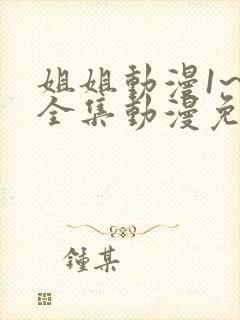 姐姐動漫1~
全集動漫免
鍾某